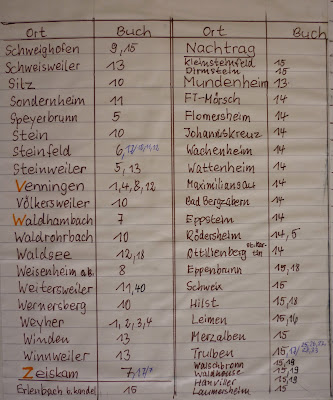 Ort Buch
Schweighofen 9, 15
Schweisweiler 13
Silz 10
Sondernheim 11
Speyerbrunn 5
Stein 10
Steinfeld 6,
Steinweiler 5, 13
Venningen 1, 4, 8, 12
Völkersweiler 10
Waldhambach 7
Waldrohrbach 10
Waldsee 12, 18
Weisenheim a.B. 8
Weitersweiler 11, 40
Wernersberg 10
Weyher 1, 2, 3, 4
Winden 13
Winnweiler 13
Zeiskam 7,
Erlenbach b. Kandel 15
Ort Buch
Nachtrag
Kleinsteinfeld 15
Dirmstein 15
Mundenheim 13
FT-Mörsch 14
Flomersheim 14
Johandskreuz 14
Wachenheim 14
Wattenheim 14
Maximiliansau 14
Bad Bergzabern 14
Eppstein 14
Rödersheim 14, 5
Ottilienberg 14
Eppenbrunn 15, 18
Schweix 15
Hilst 15, 18
Leimen 15, 16
Merzalben 15
Truben 15,
Walschbronn 15, 19
Waldhouse 15, 19
Hanviller 15, 18
Laumersheim 15